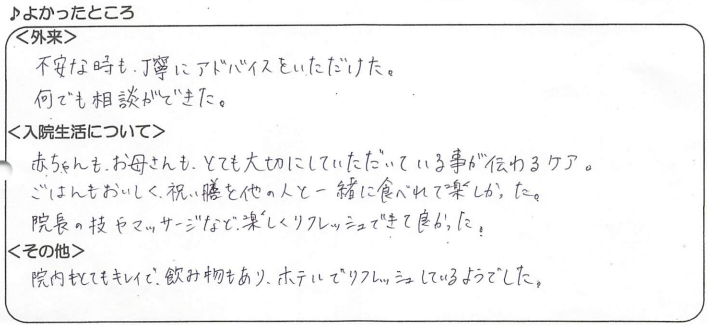 ♪よかったところ
<外来>
不安な時も、丁寧にアドバイスをいただけた。
何でも相談ができた。
<入院生活について>
赤ちゃんも、お母さんも、とても大切にしていただいている事が伝わるケア。
ごはんもおいしく、祝い膳を他の人と一緒に食べれて楽しかった。
院長の技やマッサージなど、楽しくリフレッシュできて良かった。
<その他>
院内もとてもキレイで、飲み物もあり、ホテルでリフレッシュしているようでした。